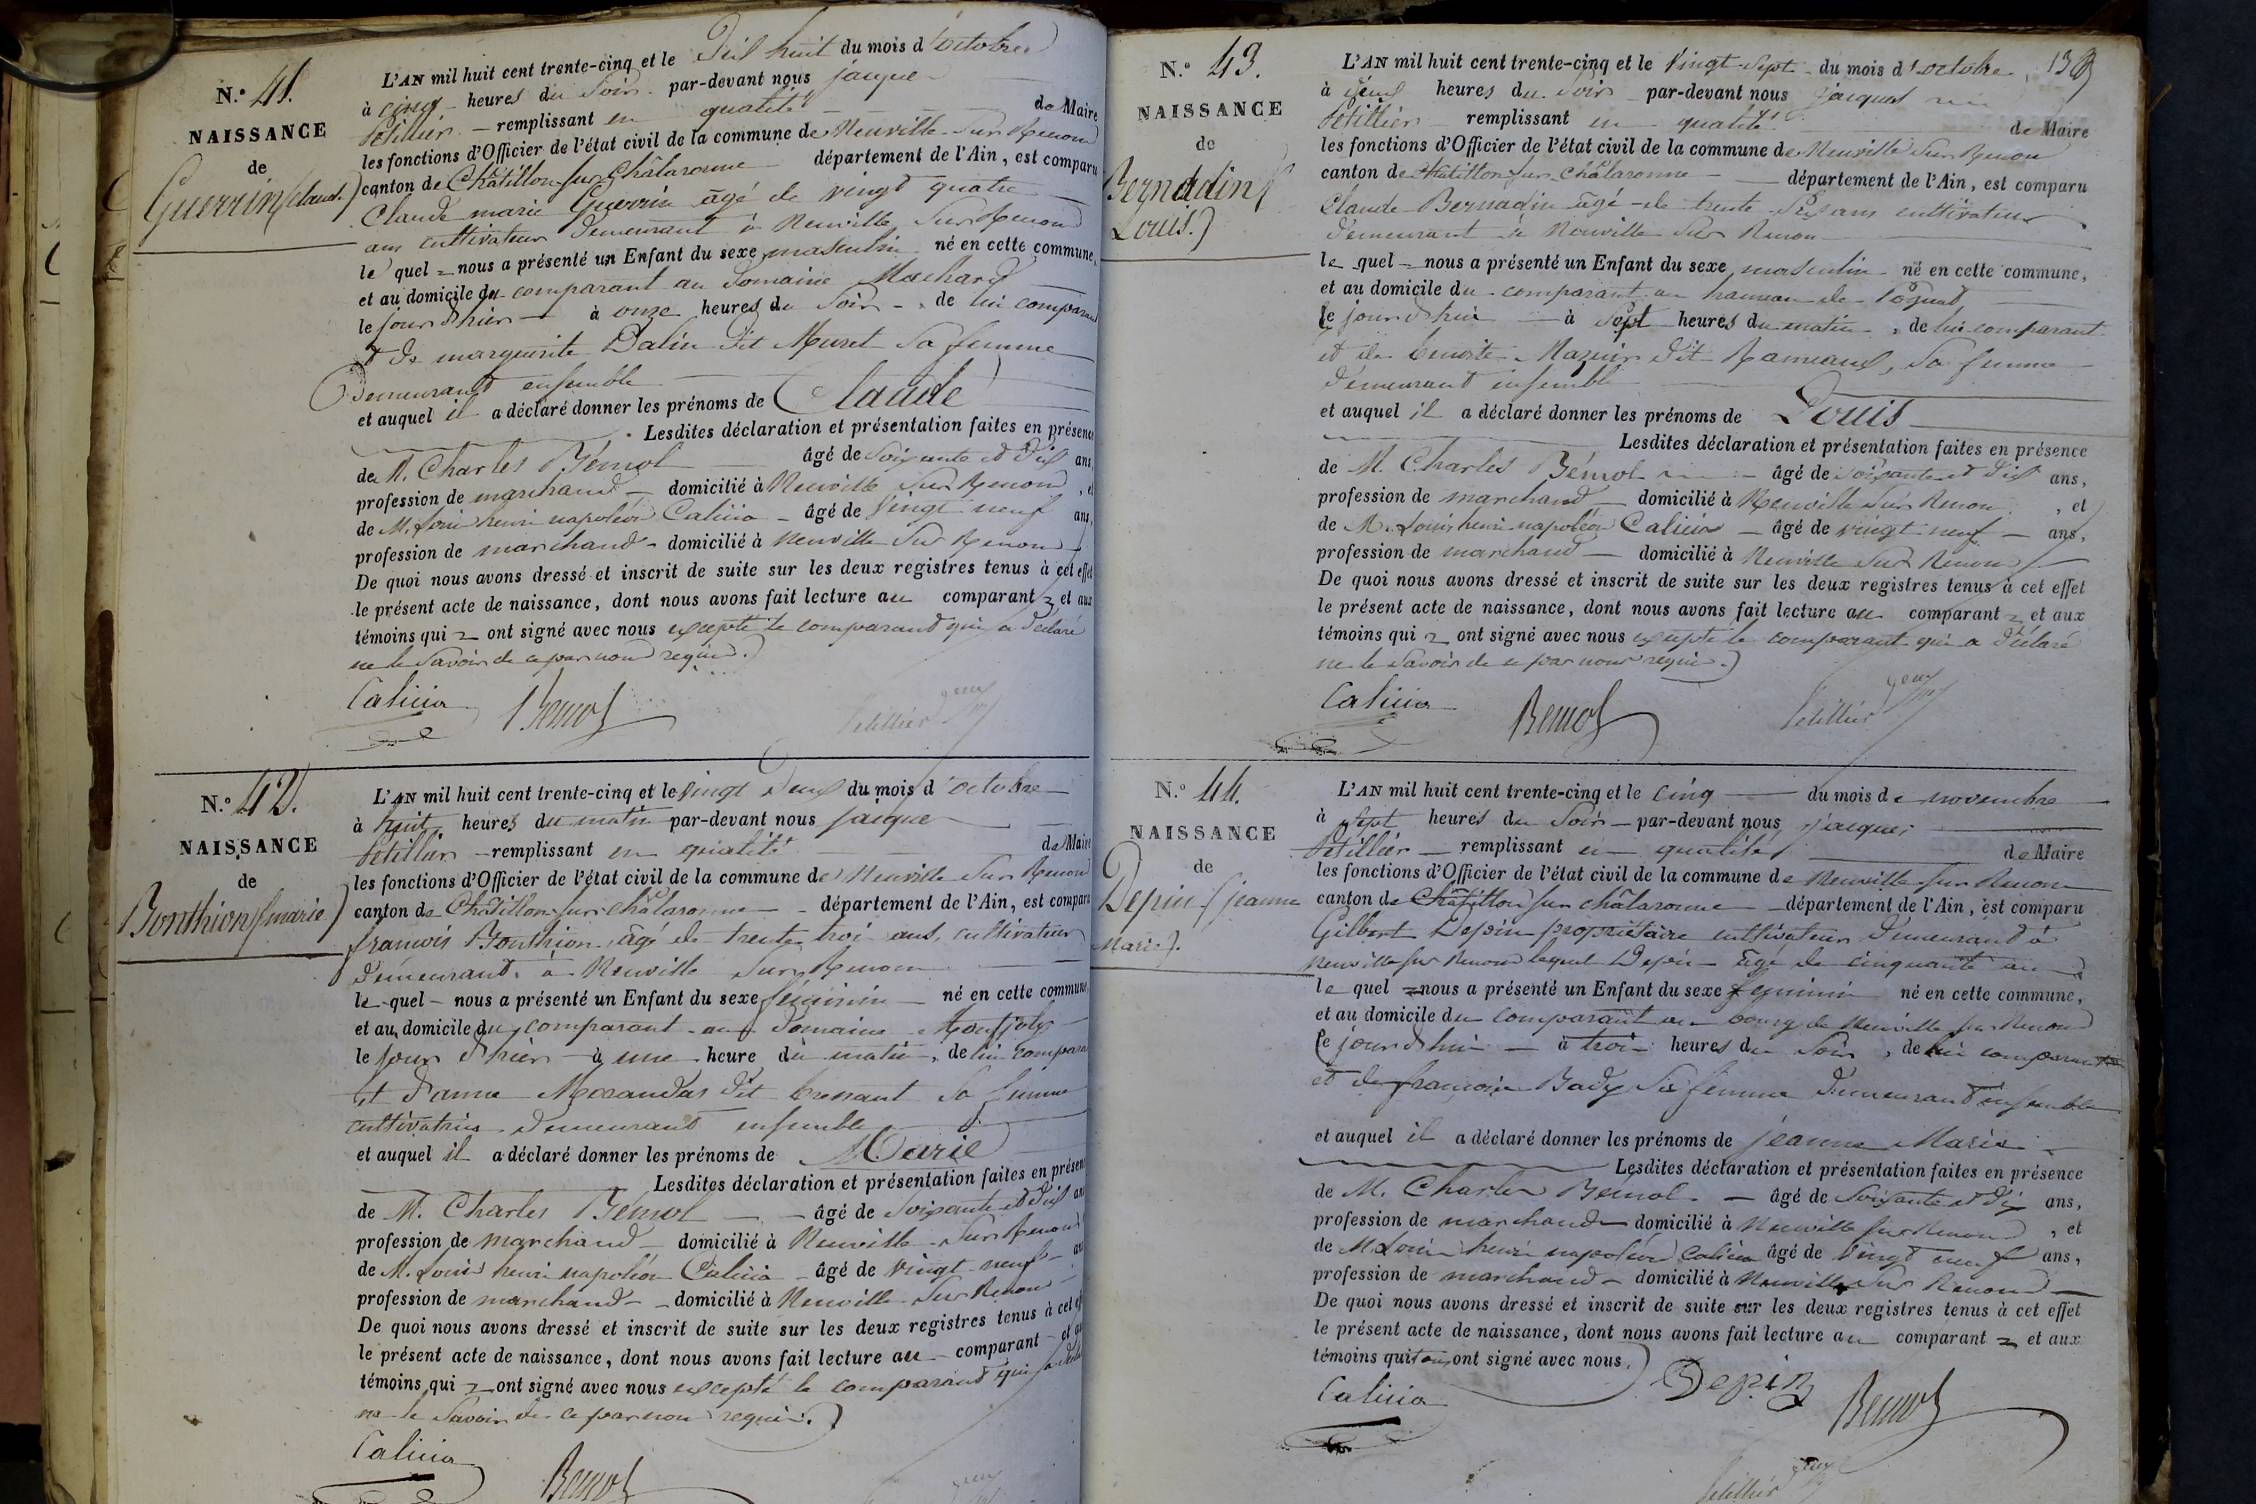 N.° 41.
NAISSANCE
de
Guerrin (claude)
L'AN mil huit cent trente-cinq et le Dix huit du mois d'octobre
à cinq heures du Soir par-devant nous jacque
Petillier remplissant en qualité de Maire
les fonctions d'Officier de l'état civil de la commune de Neuville Sur Renon
canton de Châtillon sur Châlaronne département de l'Ain, est comparu
Claude marie Guerrin âgé de vingt quatre
ans cultivateur demeurant à Neuville Sur Renon
le quel nous a présenté un Enfant du sexe masculin né en cette commune,
et au domicile du comparant au Domaine Machard
le jour d'hier à onze heures du Soir, de lui comparant
et de marguerite Dalin dit Muret Sa femme
Demeurant ensemble
et auquel il a déclaré donner les prénoms de Claude
Lesdites déclaration et présentation faites en présence
de M. Charles Bémol âgé de Soixante et Dix ans,
profession de marchand domicilié à Neuville Sur Renon, et
de M. Loui henri napoléon Calicia âgé de Vingt neuf ans,
profession de marchand domicilié à Neuville Sur Renon
De quoi nous avons dressé et inscrit de suite sur les deux registres tenus à cet effet
le présent acte de naissance, dont nous avons fait lecture au comparant et aux
témoins qui ont signé avec nous excepté le comparant qui a déclaré
ne le Savoir de ce par nous requis.)
Calicia Bemol Petillier
N.° 42.
NAISSANCE
de
Bonthion (marie)
L'AN mil huit cent trente-cinq et le vingt Deux du mois d'octobre
à huit heures du matin par-devant nous jacque
Petillier remplissant en qualité de Maire
les fonctions d'Officier de l'état civil de la commune de Neuville Sur Renon
canton de Châtillon sur châlaronne département de l'Ain, est comparu
francois Bonthion âgé de trente troi ans, cultivateur
Demeurant à Neuville Sur Renon
le quel nous a présenté un Enfant du sexe féminin né en cette commune,
et au domicile du comparant au Domaine Montjoly
le jour d'hier à une heure du matin, de lui comparant
et d'anne Morandas dit bressant Sa femme
cultivatrice demeurant ensemble
et auquel il a déclaré donner les prénoms de Marie
Lesdites déclaration et présentation faites en présence
de M. Charles Bémol âgé de Soixante et Dix ans
profession de marchand domicilié à Neuville Sur Renon
de M. Loui henri napoléon Calicia âgé de vingt neuf ans
profession de marchand domicilié à Neuville Sur Renon
De quoi nous avons dressé et inscrit de suite sur les deux registres tenus à cet effet
le présent acte de naissance, dont nous avons fait lecture au comparant et aux
témoins qui ont signé avec nous excepté le comparant qui a déclaré
ne le Savoir de ce par nou requis.)
Calicia Bemol
139
N.° 43.
NAISSANCE
de
Bernadin (
Louis.)
L'AN mil huit cent trente-cinq et le Vingt Sept du mois d'octobre
à deux heures du Soir par-devant nous jacques
Petillier remplissant en qualité de Maire
les fonctions d'Officier de l'état civil de la commune de Neuville Sur Renon
canton de Chatillon sur châlaronne département de l'Ain, est comparu
Claude Bernadin âgé de trente Six ans cultivateur
demeurant à Neuville Sur Renon
le quel nous a présenté un Enfant du sexe masculin né en cette commune,
et au domicile du comparant au hameau de
ce jourd'hui à Sept heures du matin, de lui comparant
et de benoite Mazuir dit Rameaud, Sa femme
demeurant ensemble
et auquel il a déclaré donner les prénoms de Louis
Lesdites déclaration et présentation faites en présence
de M. Charles Bémol âgé de Soixante et Dix ans,
profession de marchand domicilié à Neuville Sur Renon, et
de M. Louis henri napoléon Calicia âgé de vingt neuf ans,
profession de marchand domicilié à Neuville Sur Renon
De quoi nous avons dressé et inscrit de suite sur les deux registres tenus à cet effet
le présent acte de naissance, dont nous avons fait lecture au comparant et aux
témoins qui ont signé avec nous excepté le comparant qui a déclaré
ne le Savoir de ce par nous requis.)
Calicia Bemol Petillier
N.° 44.
NAISSANCE
de
Depin (jeanne
Marie).
L'AN mil huit cent trente-cinq et le cinq du mois de novembre
à Sept heures du Soir par-devant nous jacques
Petillier remplissant en qualité de Maire
les fonctions d'Officier de l'état civil de la commune de Neuville sur Renon
canton de Châtillon sur châlaronne département de l'Ain, est comparu
Gilbert Depin propriétaire cultivateur Demeurant à
Neuville sur Renon lequel Depin âgé de cinquante an
le quel nous a présenté un Enfant du sexe feminin né en cette commune,
et au domicile du comparant au bourg de Neuville sur Renon
ce jourd'hui à troi heures du Soir, de lui comparant
et de francoise Bady Sa femme Demeurant ensemble
et auquel il a déclaré donner les prénoms de jeanne Marie
Lesdites déclaration et présentation faites en présence
de M. Charles Bemol âgé de Soixante et Dix ans,
profession de marchand domicilié à Neuville sur Renon, et
de M. Loui henri napoléon Calicia âgé de Vingt neuf ans,
profession de marchand domicilié à Neuville Sur Renon
De quoi nous avons dressé et inscrit de suite sur les deux registres tenus à cet effet
le présent acte de naissance, dont nous avons fait lecture au comparant et aux
témoins qui tous ont signé avec nous.
Calicia Depin Bemol
Petillier